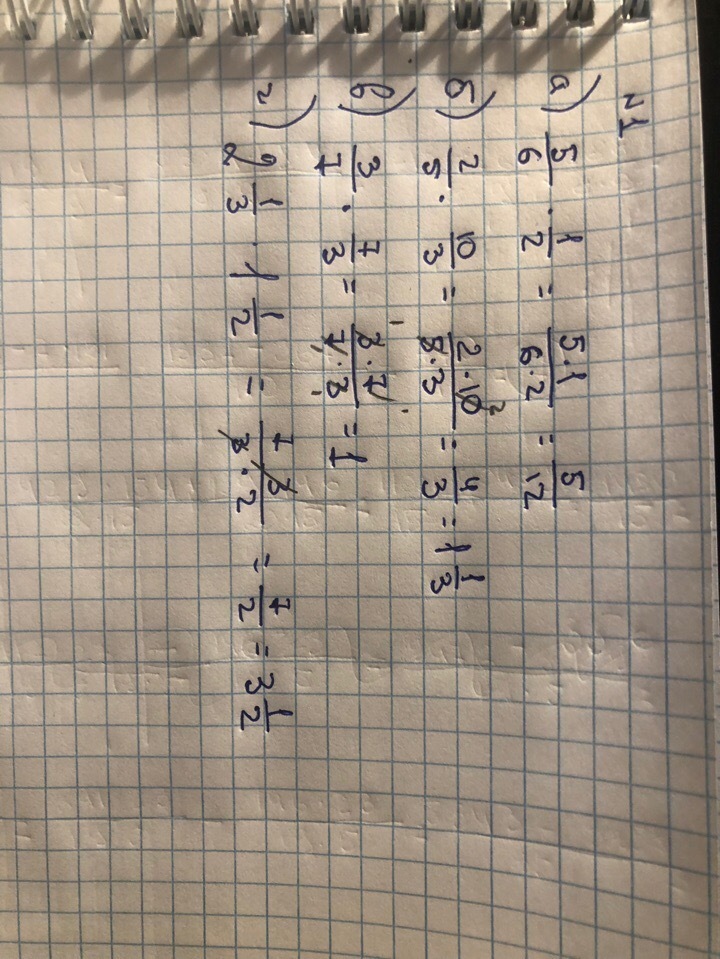 №1
а) 5/6 · 1/2 = 5·1/6·2 = 5/12
б) 2/5 · 10/3 = 2·10 2/5·3 = 4/3 = 1 1/3
в) 3/7 · 7/3 = 3·7/7·3 = 1
г) 2 1/3 · 1 1/2 = 7 3/3·2 = 7/2 = 3 1/2